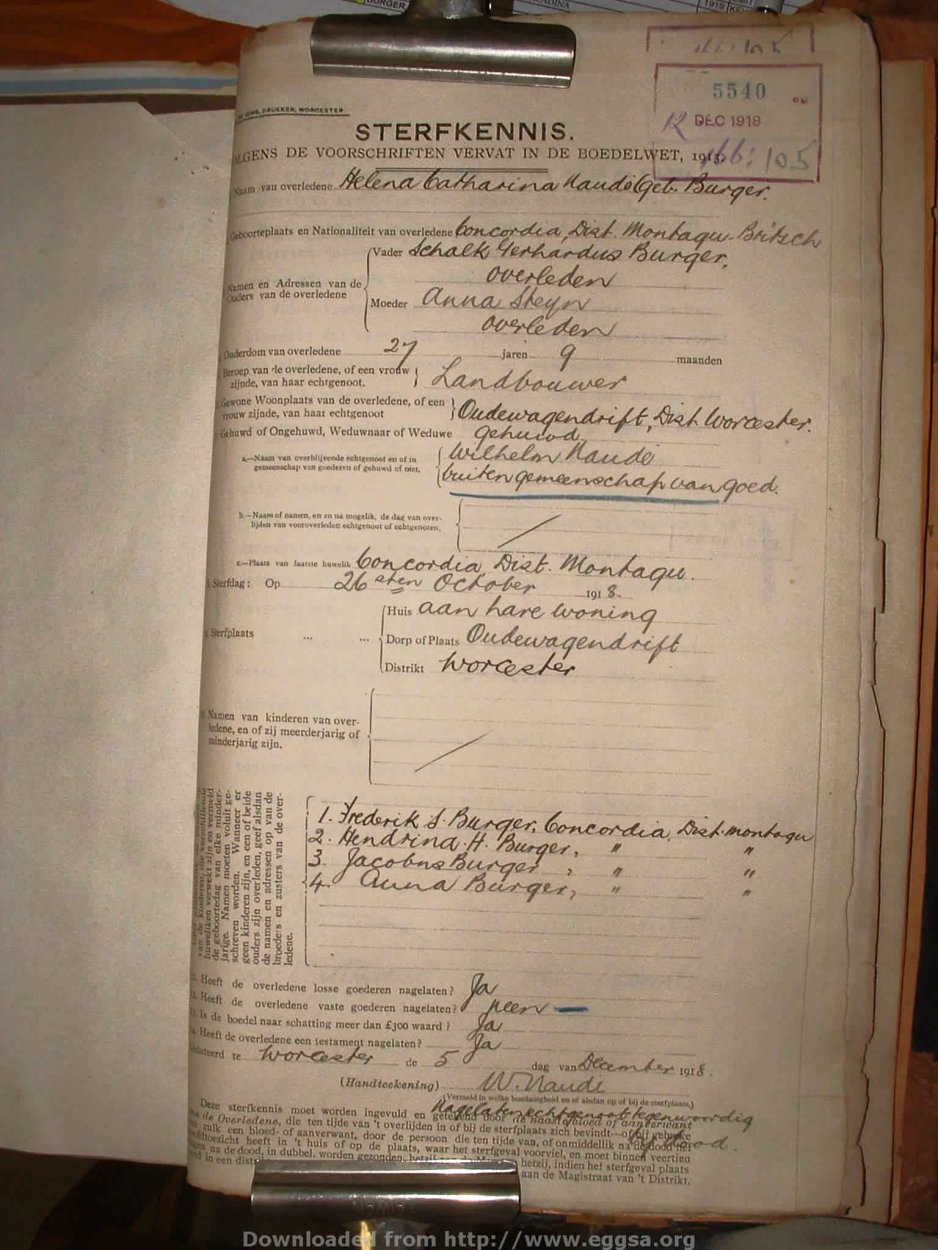 BURGER
1919
5540
12 DEC 1918
166:105
DRUKKER, WORCESTER
STERFKENNIS.
VOLGENS DE VOORSCHRIFTEN VERVAT IN DE BOEDELWET, 1913.
Naam van overledene Helena Catharina Naudé (Geb. Burger.
Geboorteplaats en Nationaliteit van overledene Concordia, Dist. Montagu - Britsch
Namen en Adressen van de Ouders van de overledene
Vader Schalk Gerhardus Burger,
overleden
Moeder Anna Steyn
overleden
Ouderdom van overledene 27 jaren 9 maanden
Beroep van de overledene, of een vrouw zijnde, van haar echtgenoot. Landbouwer
Gewone Woonplaats van de overledene, of een vrouw zijnde, van haar echtgenoot Oudewagendrift, Dist. Worcester.
Gehuwd of Ongehuwd, Weduwnaar of Weduwe gehuwd
a.—Naam van overblijvende echtgenoot en of in
gemeenschap van goederen of gehuwd of niet,
Wilhelm Naudé
buiten gemeenschap van goed.
b.—Naam of namen, en zo na mogelik, de dag van over-
lijden van vooroverleden echtgenoot of echtgenoten,
c.—Plaats van laatste huwelik Concordia, Dist. Montagu.
Sterfdag: Op 26sten October 1918.
Sterfplaats ... ...
Huis aan hare woning
Dorp of Plaats Oudewagendrift
Distrikt Worcester
Namen van kinderen van over-
ledene, en of zij meerderjarig of
minderjarig zijn.
van de kinderen, die verschillende
huweliken verwekt zijn en vermeld
de geboortedag van elke minder-
jarige. Namen moeten voluit ge-
schreven worden. Wanneer er
geen kinderen zijn, en een of beide
ouders zijn overleden, geef alsdan
de namen en adressen op van de
broeders en zusters van de over-
ledene.
1. Frederik S. Burger, Concordia, Dist. Montagu
2. Hendrina H. Burger, " "
3. Jacobus Burger, " "
4. Anna Burger, " "
11. Heeft de overledene losse goederen nagelaten? Ja
12. Heeft de overledene vaste goederen nagelaten? neen —
13. Is de boedel naar schatting meer dan £300 waard? Ja
14. Heeft de overledene een testament nagelaten? Ja
Gedateerd te Worcester de 5 dag van December 1918.
(Handteekening) W. Naude
(Vermeld in welke hoedanigheid en of alsdan op of bij de sterfplaats.)
Nagelaten echtgenoot tegenwoordig
bij dood.
Deze sterfkennis moet worden ingevuld en getekend door de naaste bloed of aanverwant
van de Overledene, die ten tijde van 't overlijden in of bij de sterfplaats zich bevindt—of bij gebreke
van zulk een bloed- of aanverwant, door de persoon die ten tijde van, of onmiddellik na de dood het
hoofdtoezicht heeft in 't huis of op de plaats, waar het sterfgeval voorviel, en moet binnen veertien
dagen na de dood, in dubbel, worden gezonden, hetzij, indien het sterfgeval plaats
vond in een distrikt aan de Magistraat van 't Distrikt.
Downloaded from http://www.eggsa.org